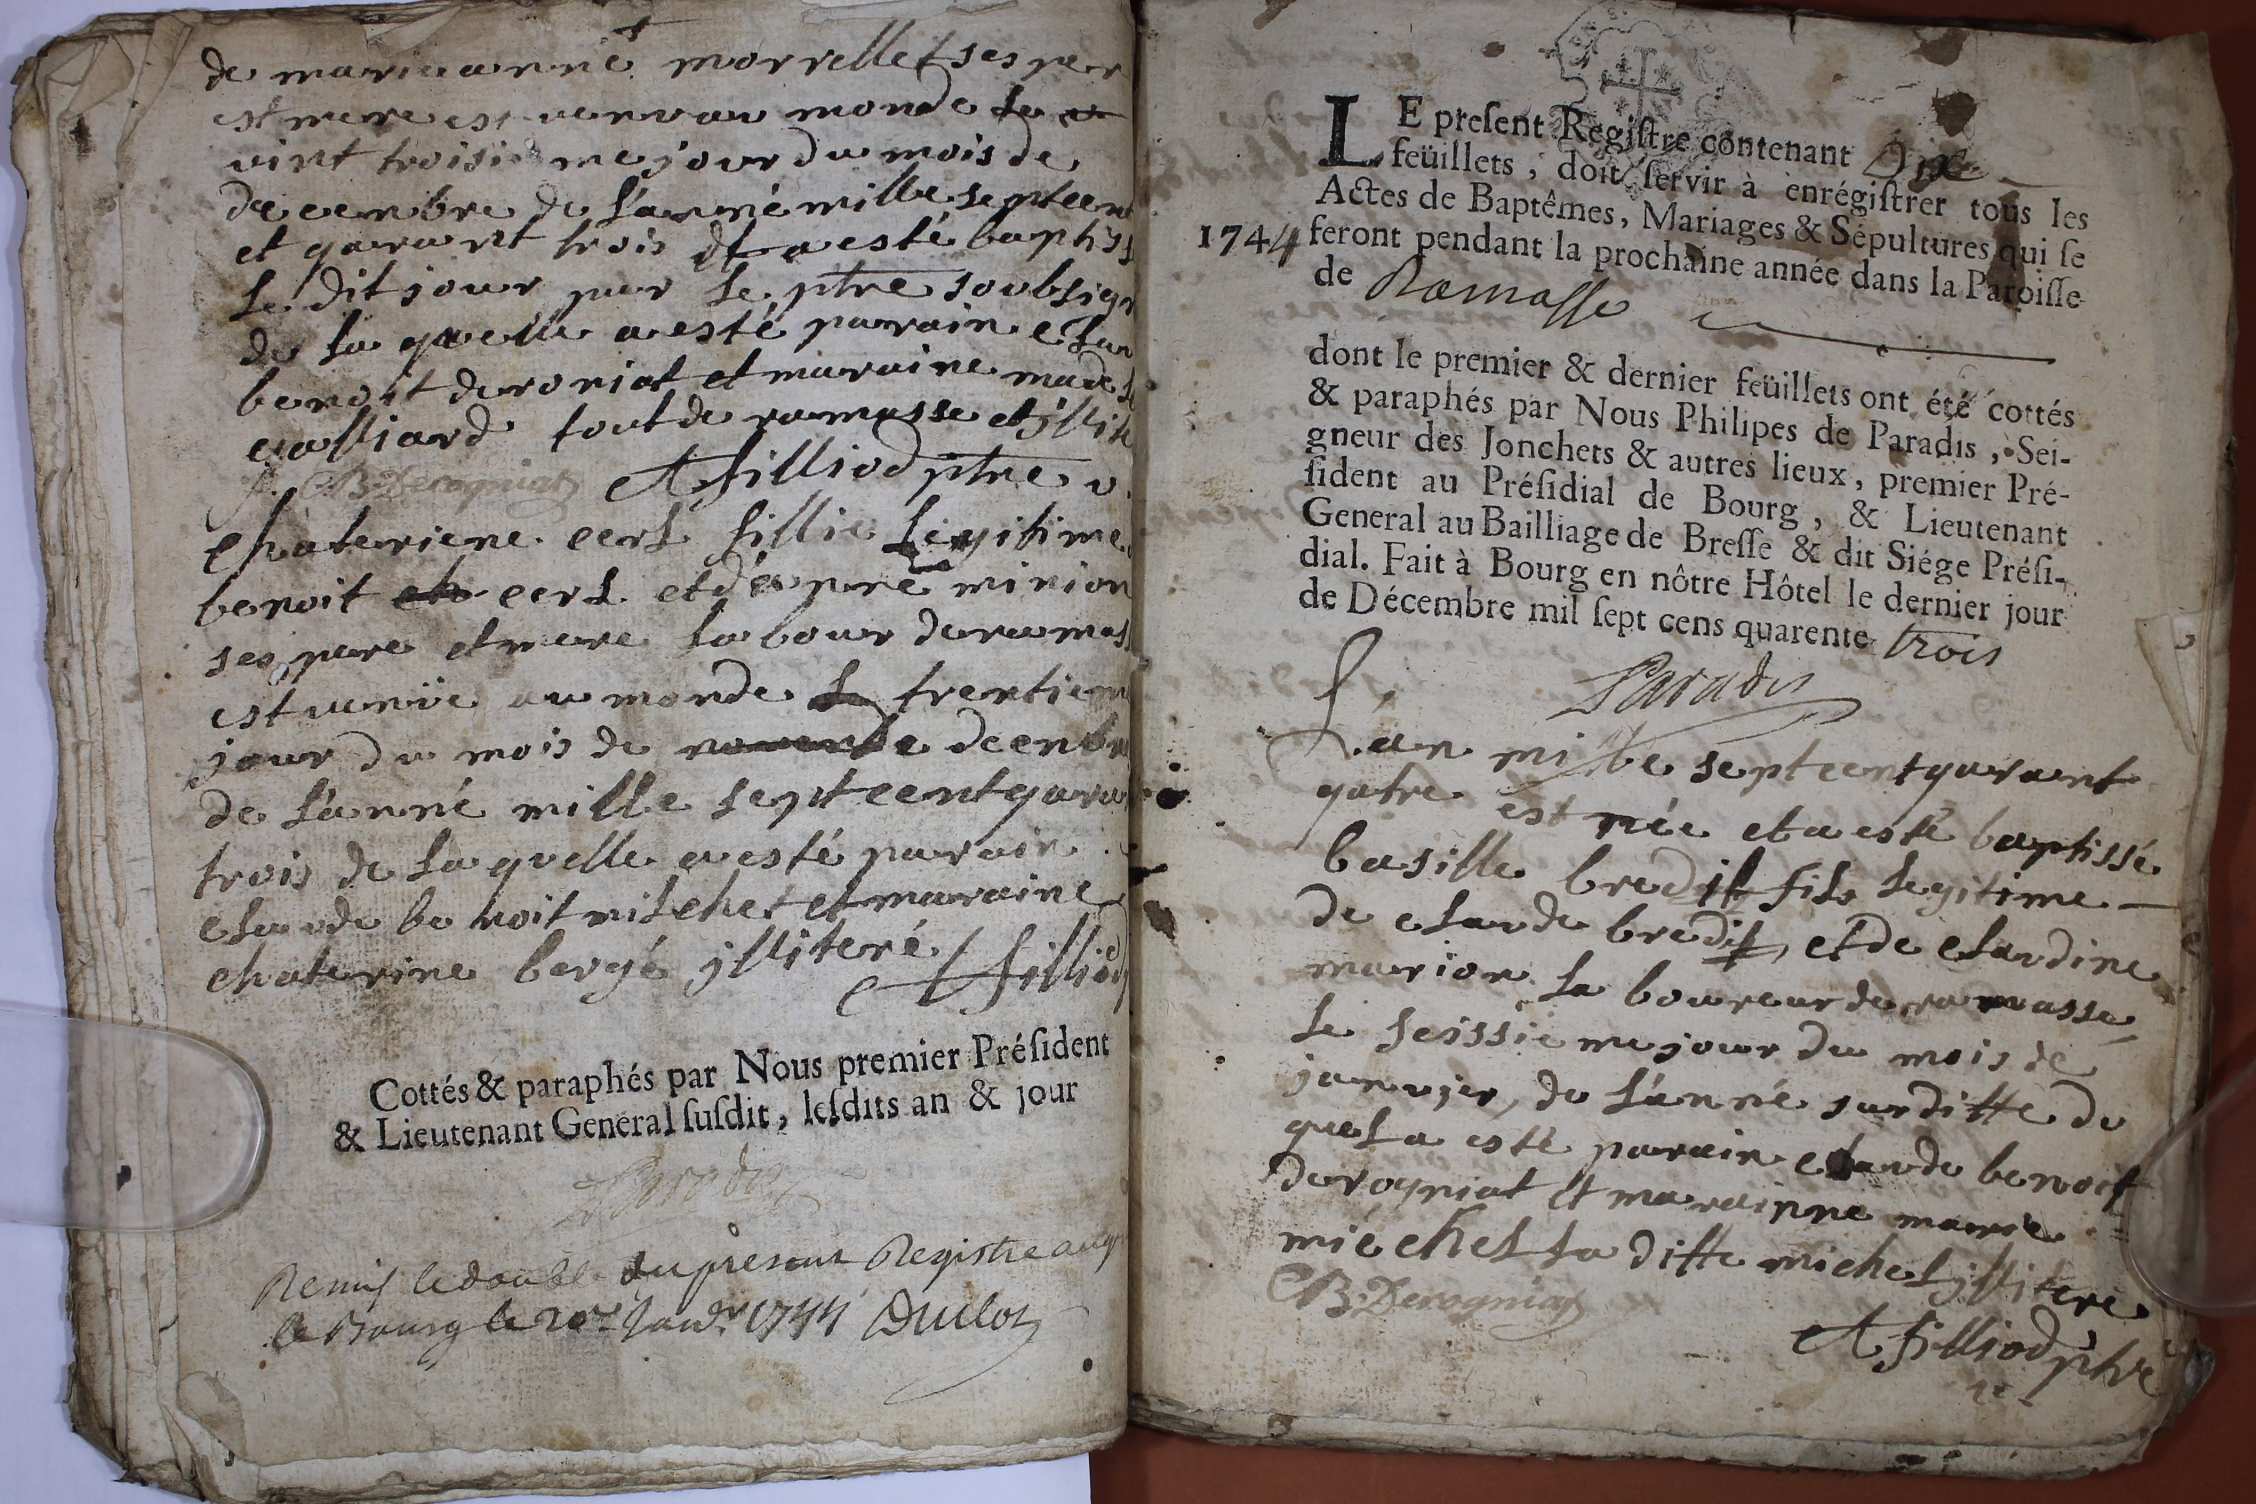 de mariaanne morrellet ses per
est mere est venu au monde le
vint troisie me jour du mois de
decenbre de l'anné mille septcent
et garant trois et a esté baptiss
le dit jour par le ptre soubsign
de la quelle a esté parain clau
benoit deroniat et maraine made
galliard tout de ramasse et illit
B. Derogniat A filliod ptre v.
Chateriene cerl fillie legitime
benoit cerl et d'epiné minion
ses pere et mere la bour de ramass
est venüe au monde le trentiem
jour du mois de novenbe decenbr
de l'anné mille septcent gara
trois de la quelle a esté parain
claude be noit milchet et maraine
chaterine bergé illiteré A filliod
Cottés & paraphés par Nous premier Préſident
& Lieutenant General ſuſdit, leſdits an & jour
Paradis
Remis le double du present Registre au g
de Bourg le 20e Janvr 1744 Duclos
LE preſent Regiſtre contenant Dix
feüillets, doit ſervir à enrégiſtrer tous les
Actes de Baptêmes, Mariages & Sépultures qui ſe
1744 feront pendant la prochaine année dans la Paroiſſe
de Ramasse
dont le premier & dernier feüillets ont été cottés
& paraphés par Nous Philipes de Paradis, Sei-
gneur des Jonchets & autres lieux, premier Pré-
ſident au Préſidial de Bourg, & Lieutenant
General au Bailliage de Breſſe & dit Siége Préſi-
dial. Fait à Bourg en nôtre Hôtel le dernier jour
de Décembre mil ſept cens quarente trois
Paradis
L'an mille septcent garant
gatre est née et a esté baptissé
basille bredit fils legitime
de claude bredit, et de claudine
marion la boureur de ramasse
le seissie me jour du mois de
janvjer, de l'anné surditte du
quel a esté parain claude benoit
derogniat et marainne marie
miéchel la ditte michel jlliteré
B. Derogniat
A filliod ptre